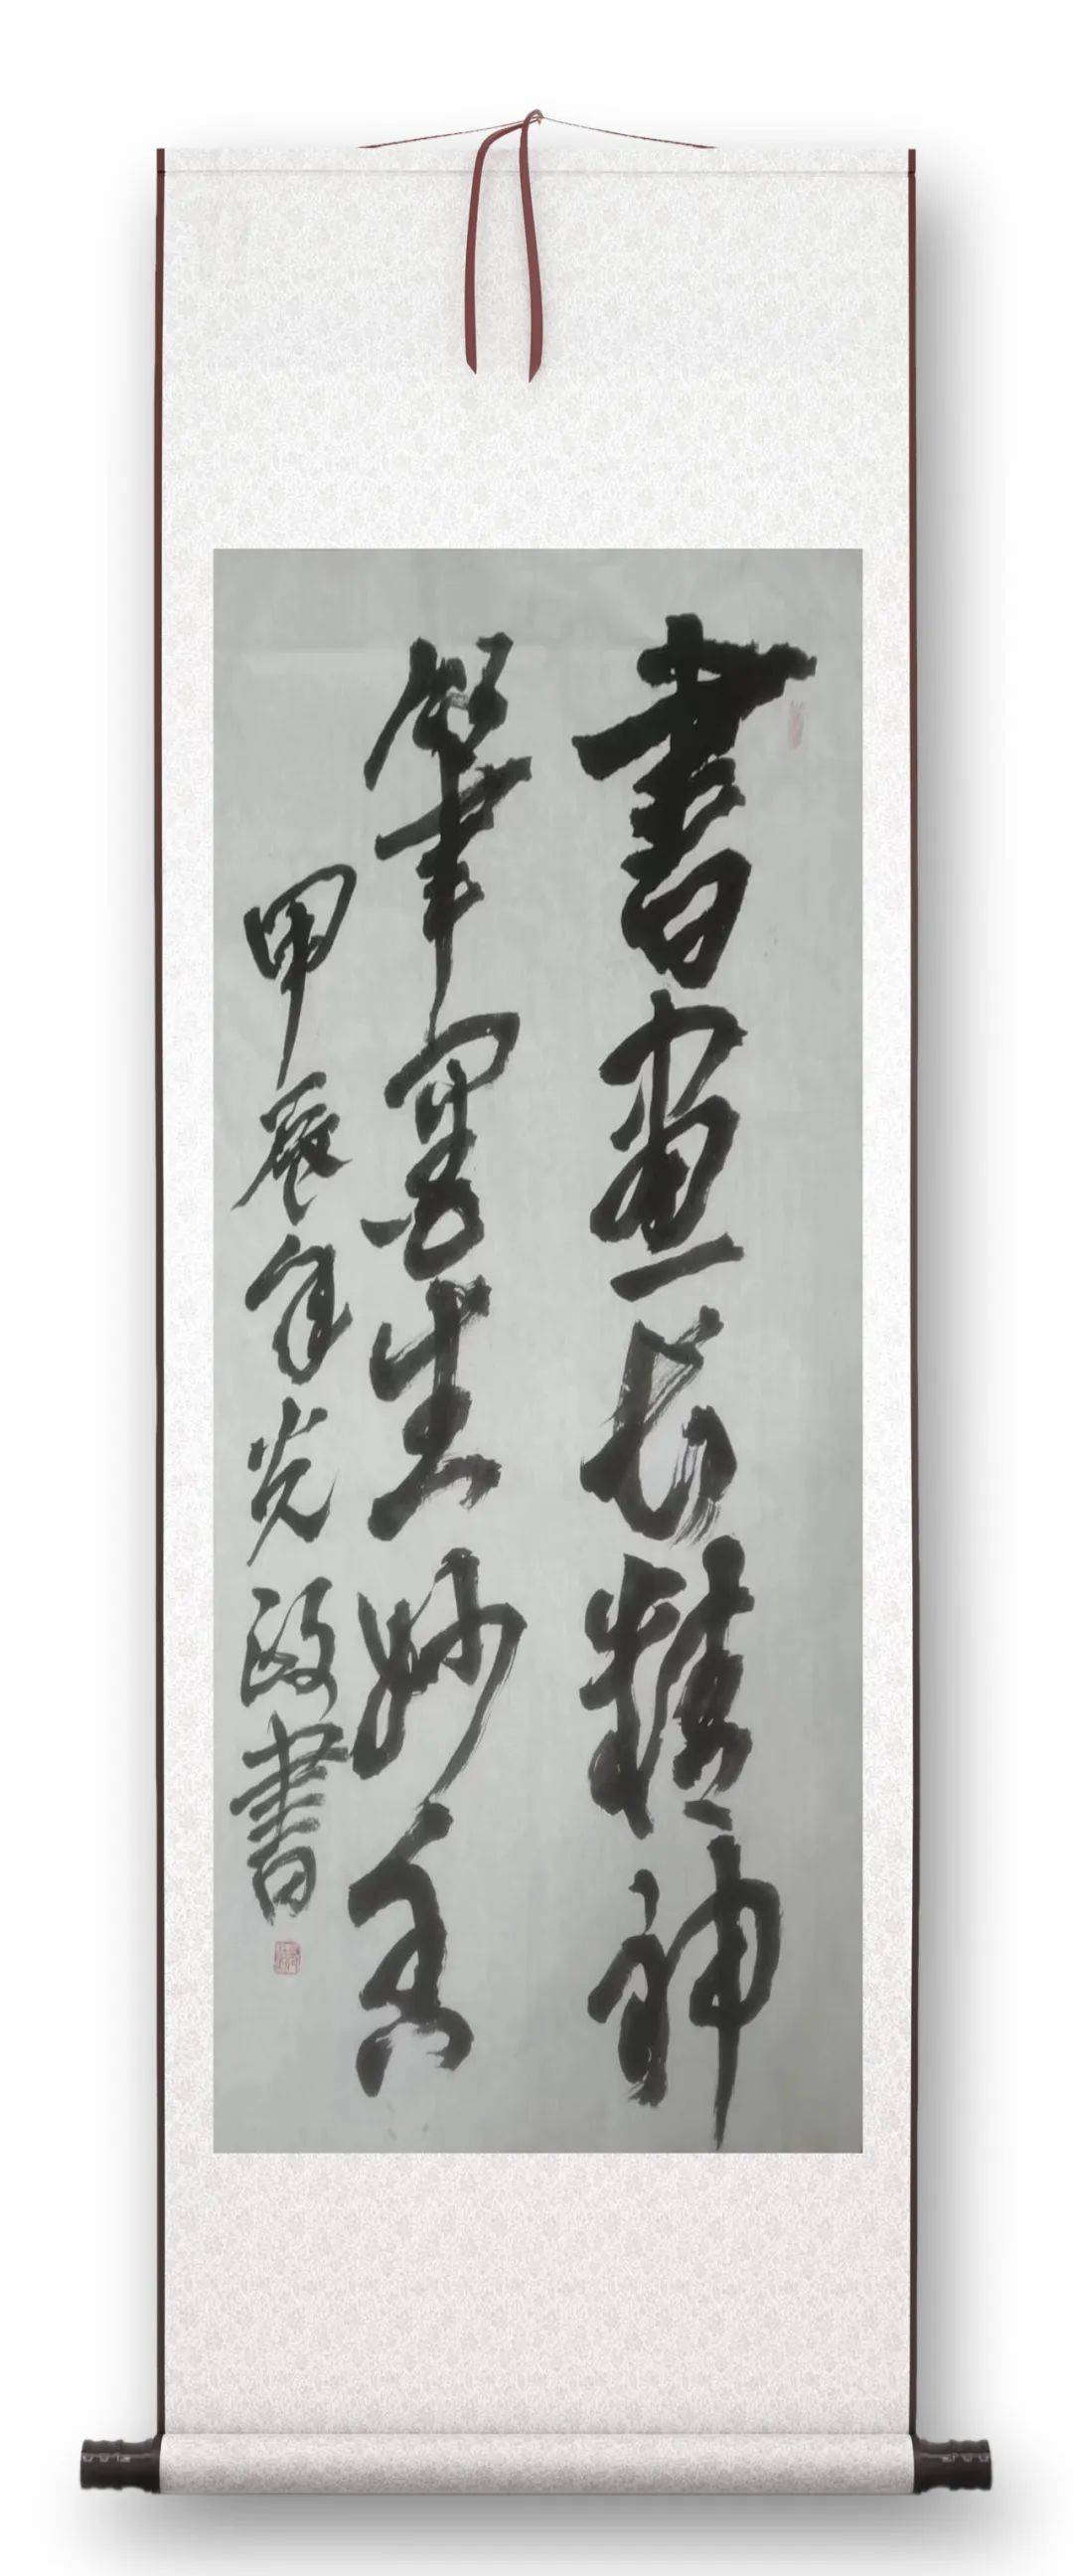 書畫長精神
筆墨生妙香
甲辰年光政書